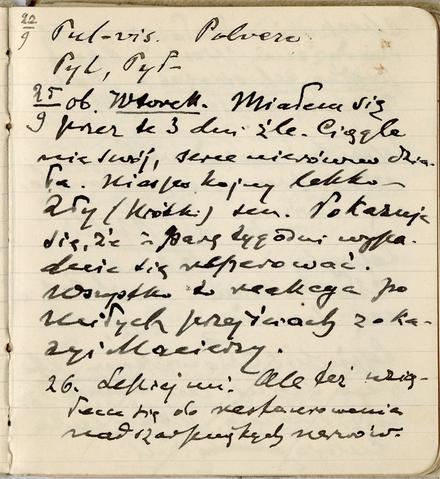 22/9 Pul-vis. Polvere
Pyl, Pył-
25/9 ob. Wtorek. Miałem się
przez te 3 dni źle. Ciągle
nieswój, serce nierówno dzia-
ła. Niespokojny lekko-
zły (krótki) sen. Pokazuje
się, że parę tygodni wypa-
dnie się reperować.
Wszystko to reakcja po
miłych przejściach z oka-
zyi Macierzy.
26. Lepiej mi. Ale też wzią-
łem się do restaurowania
nadszarpniętych nerwów.